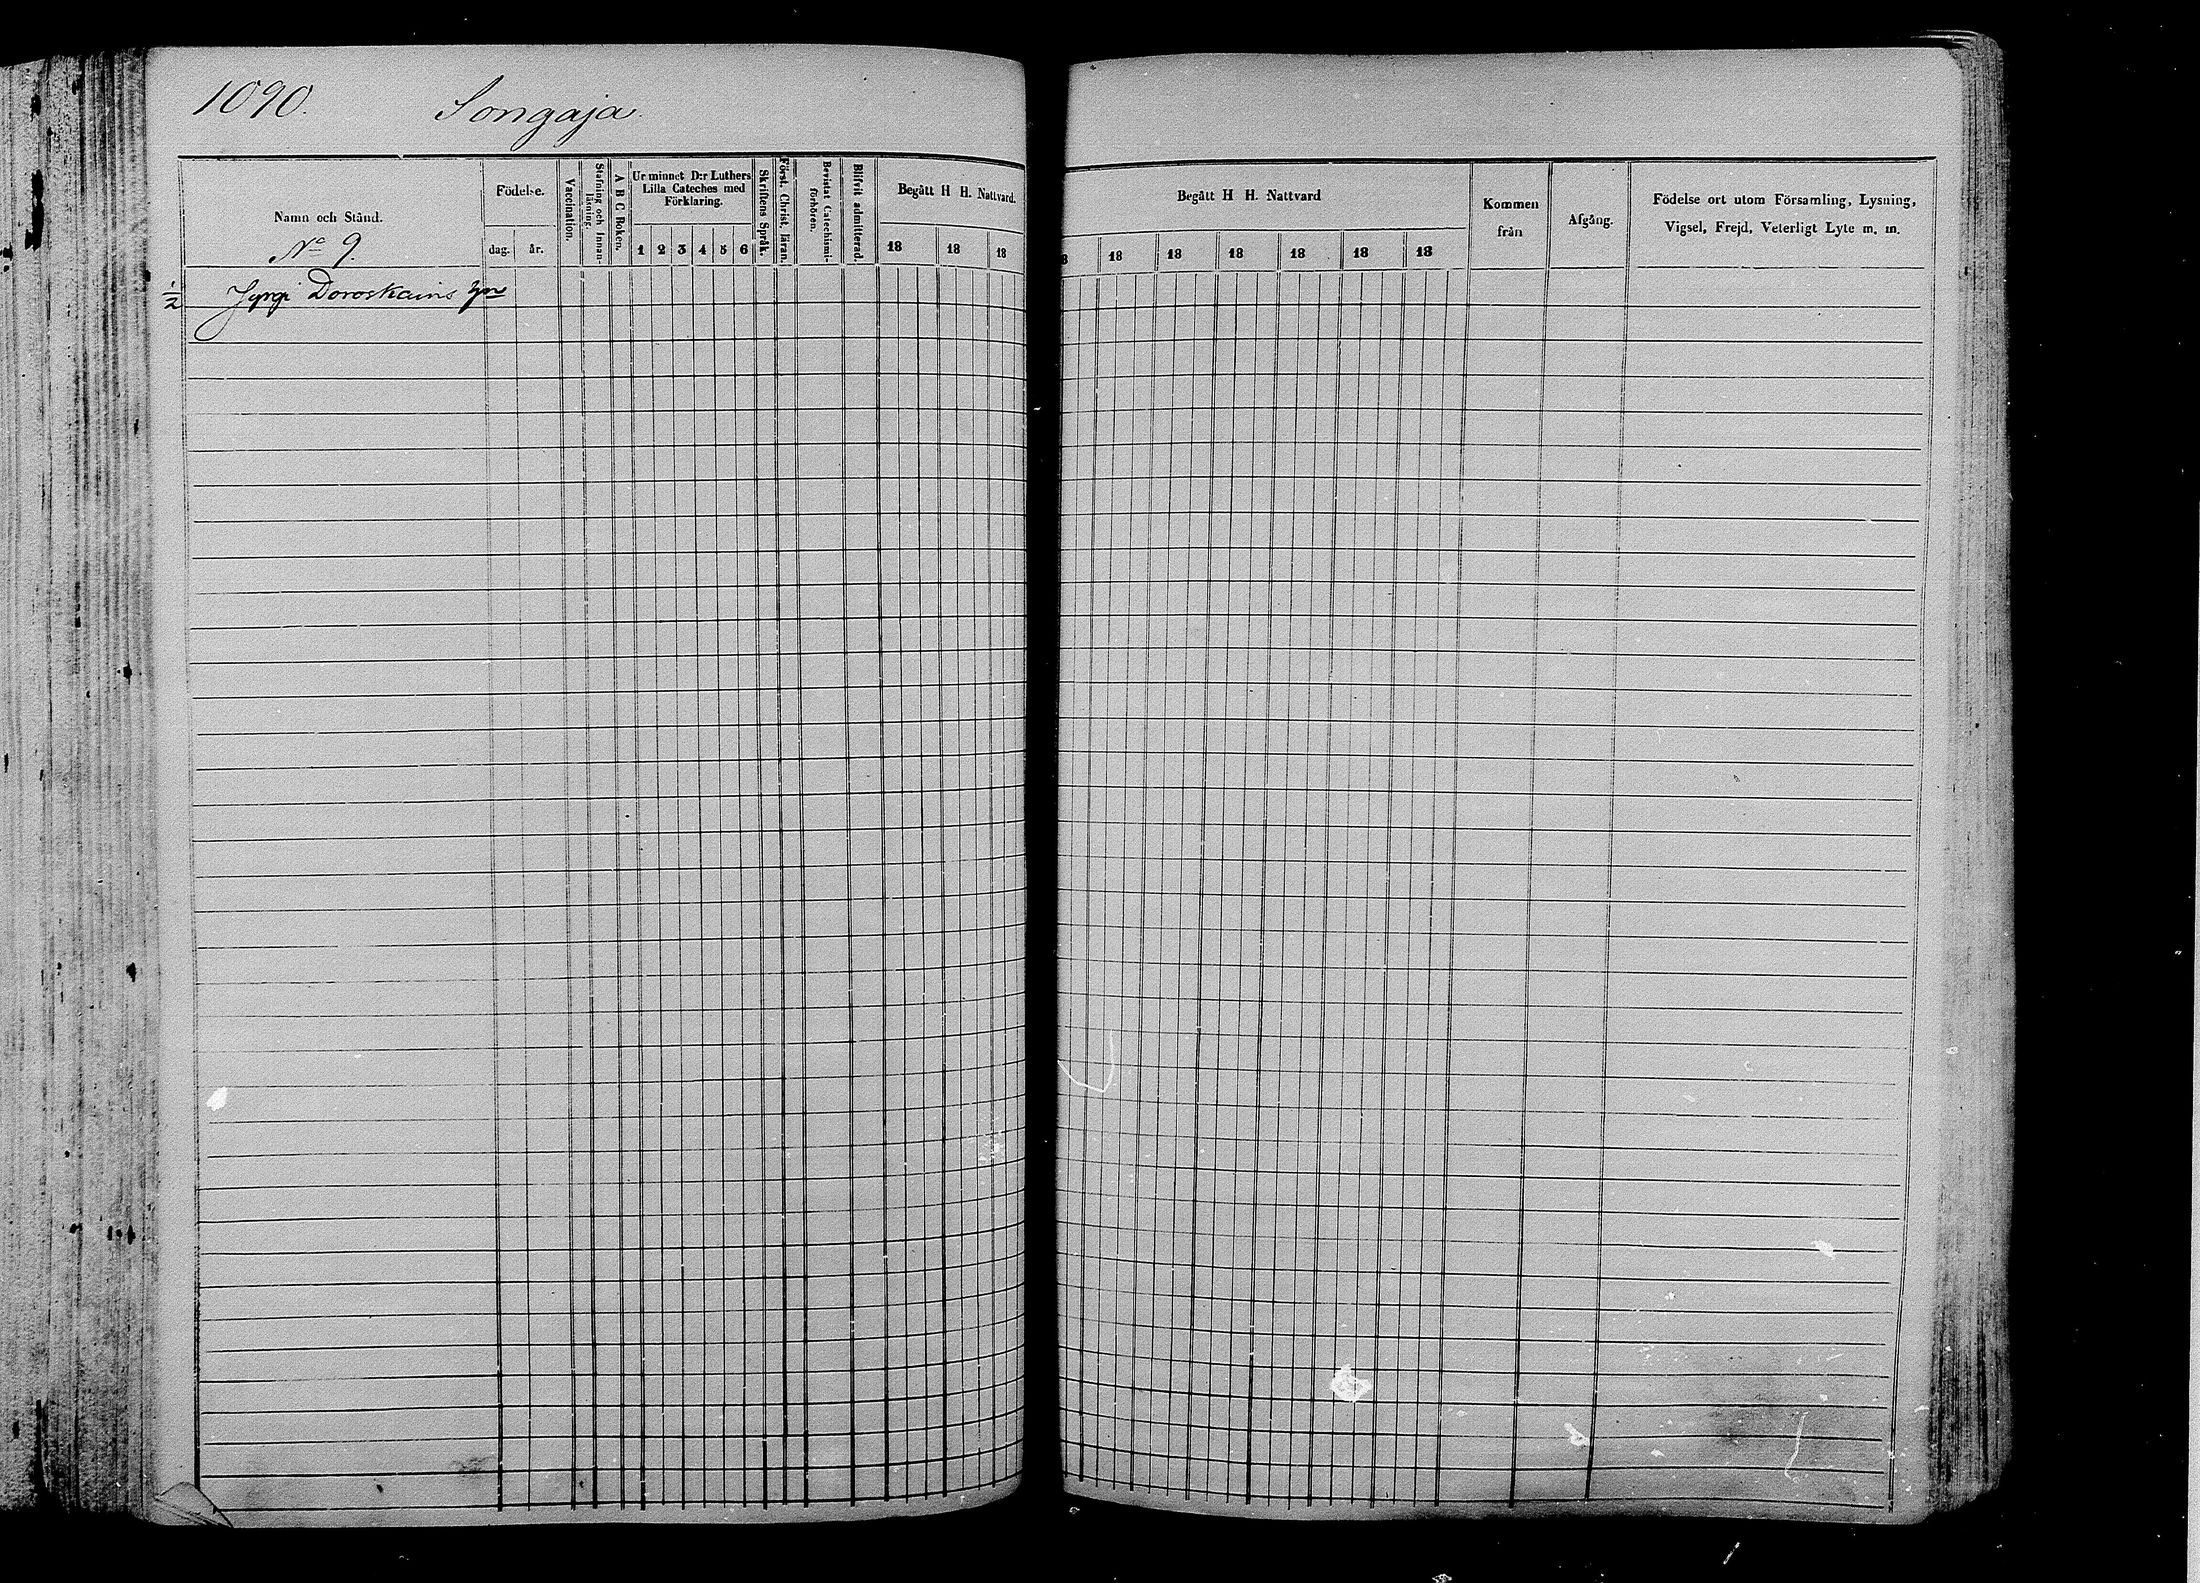 1090. Songaja.
Namn och Stånd.
No 9.
Födelse.
dag. år.
Vaccination.
Stafning och Innan-
läsning.
A B C Boken.
Ur minnet D:r Luthers
Lilla Cateches med
Förklaring.
1 2 3 4 5 6
Skriftens Språk.
Först. Christ. lära.
Bevistat Catechismi-
förhören.
Blifvit admitterad.
Begått H H. Nattvard.
18 18 18
Begått H H. Nattvard
8 18 18 18 18 18 18
Kommen
från
Afgång.
Födelse ort utom Församling, Lysning,
Vigsel, Frejd, Veterligt Lyte m. m.
1/2 Jyrgi Doroskains